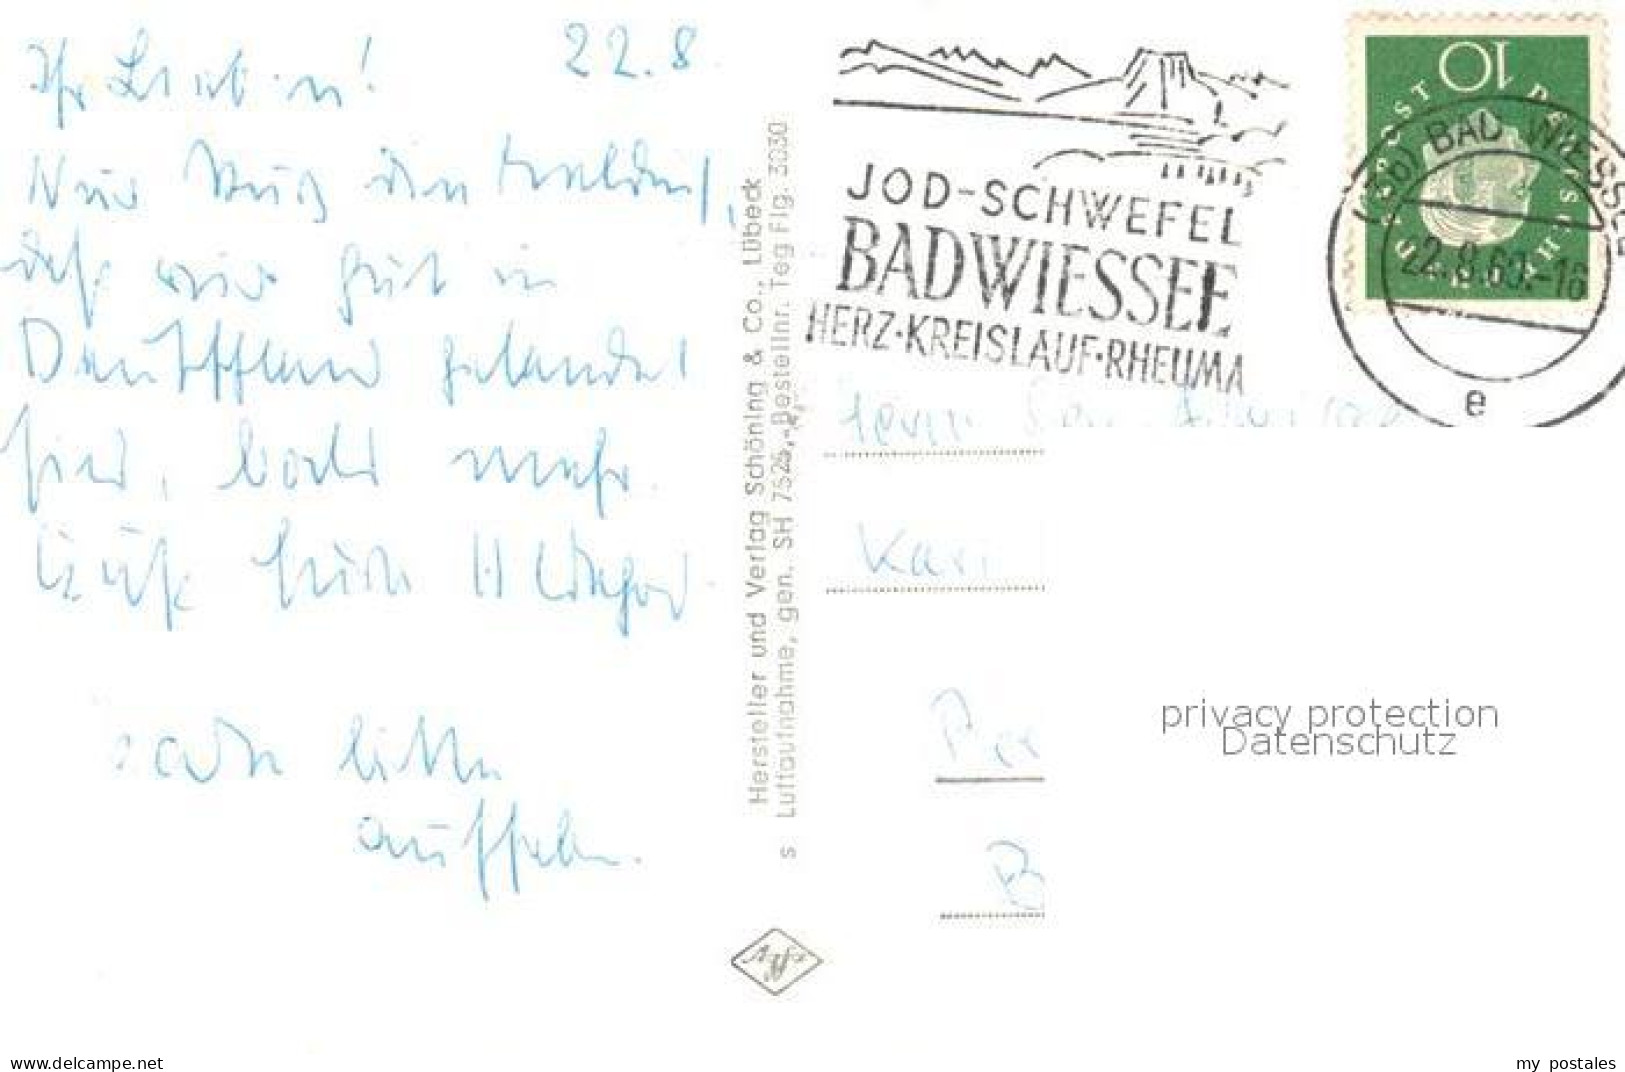 22.8.
Ihr Lieben!
Nur kurz den
daß wir gut in
Deutschland gelandet
sind, bald mehr.
Karte bitte
aufheben.
Hersteller und Verlag Schöning & Co., Lübeck
Luftaufnahme, gen. SH 7626, Bestellnr. Teg Flg. 3030
s
JOD-SCHWEFEL
BAD WIESSEE
HERZ·KREISLAUF·RHEUMA
10
DEUTSCHE BUNDESPOST
BAD WIESSEE
22.8.60.-16
e
Agfa
privacy protection
Datenschutz
www.delcampe.net
my_postales